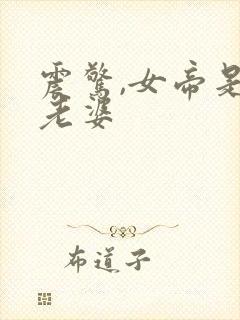 震驚,女帝是
老婆
布道子